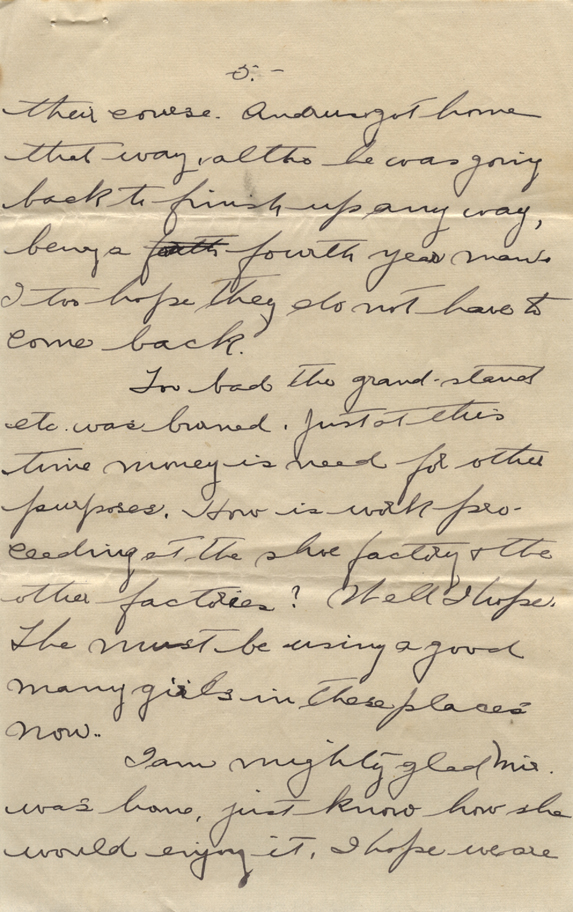 5. -
their course. Andrus got home
that way, altho he was going
back to finish up any way,
being a fourth year man.
I too hope they do not have to
come back.
Too bad the grand-stand
etc. was burned. Just at this
time money is need for other
purposes. How is work pro-
ceeding at the shoe factory & the
other factories? Well I hope.
The must be using a good
many girls in these places
now.
I am mighty glad Mir.
was home, just know how she
would enjoy it. I hope we are